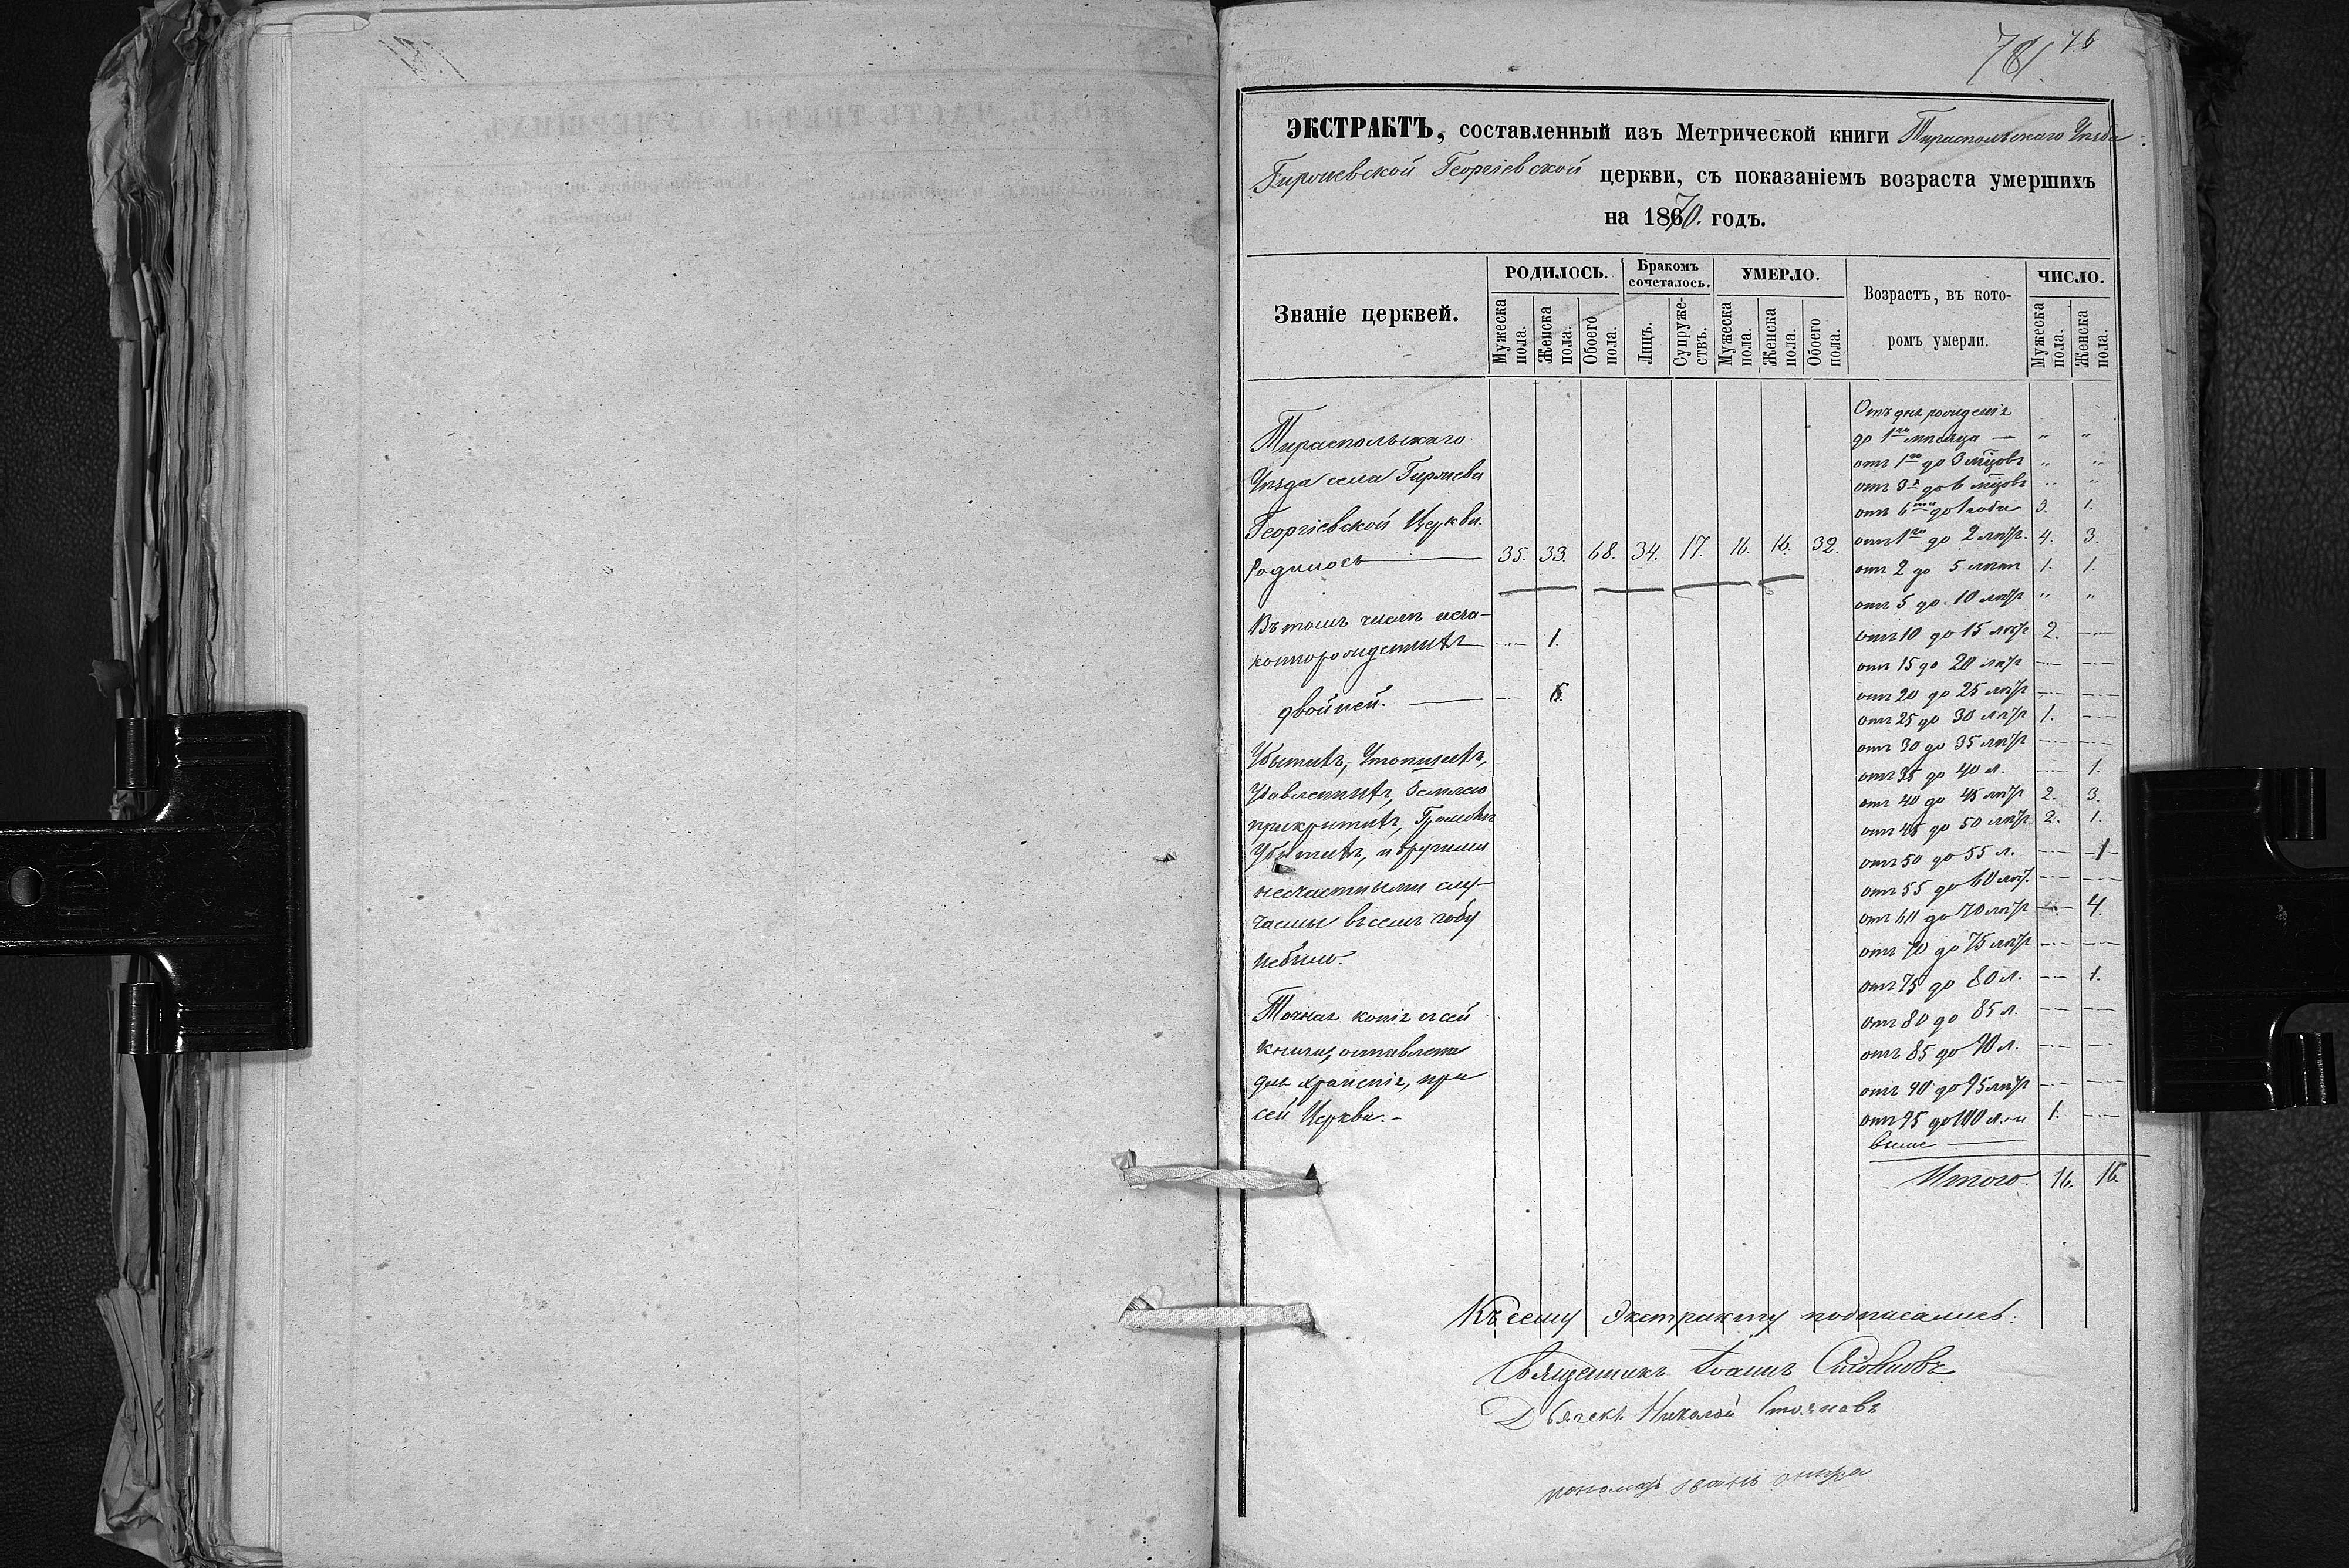 78/ 76
ЭКСТРАКТЪ, составленный изъ Метрической книги Тираспольскаго Уѣзда
Гирьевской Георгіевской церкви, съ показаніемъ возраста умершихъ
на 1870. годъ.
Званіе церквей.
РОДИЛОСЬ.
Бракомъ сочеталось.
УМЕРЛО.
Возрастъ, въ кото-
ромъ умерли.
ЧИСЛО.
Мужеска пола.
Женска пола.
Обоего пола.
Лицъ.
Супруже-
ствъ.
Мужеска пола.
Женска пола.
Обоего пола.
Мужеска пола.
Женска пола.
Тираспольскаго
Уѣзда села Гирьева
Георгіевской Церкви.
Родилось — 35. 33. 68. 34. 17. 16. 16. 32.
Въ томъ числѣ неза-
конорожденныхъ — — 1.
двойней. — —
Убитыхъ, Утопшихъ,
Удавленныхъ, Землею
прикрытыхъ, Громомъ
Убитыхъ, и другими
несчастными слу-
чаями въ семъ году
небыло.
Точная копія съ сей
книги, оставлена
для храненія, при
сей Церкви.–
Отъ дня рожденія
до 1го мѣсяца — " "
отъ 1го до 3 мцовъ " "
отъ 3х до 6 мцовъ " "
отъ 6ти до 1 года 3. 1.
отъ 1го до 2 лѣтъ. 4. 3.
отъ 2 до 5 лѣтъ 1. 1.
отъ 5 до 10 лѣтъ " "
отъ 10 до 15 лѣтъ 2. —
отъ 15 до 20 лѣтъ — —
отъ 20 до 25 лѣтъ — —
отъ 25 до 30 лѣтъ 1. —
отъ 30 до 35 лѣтъ — —
отъ 35 до 40 л. — 1.
отъ 40 до 45 лѣтъ 2. 3.
отъ 45 до 50 лѣтъ 2. 1.
отъ 50 до 55 л. — 1
отъ 55 до 60 лѣт. — —
отъ 60 до 70 лѣтъ — 4.
отъ 70 до 75 лѣтъ — —
отъ 75 до 80 л. — 1.
отъ 80 до 85 л. — —
отъ 85 до 90 л. — —
отъ 90 до 95 лѣтъ — —
отъ 95 до 100 л. и 1. —
выше —
Итого 16. 16.
Къ сему Экстракту подписались:
Священникъ Іоаннъ
Дьячекъ Николай Стояновъ
пономарь Иванъ